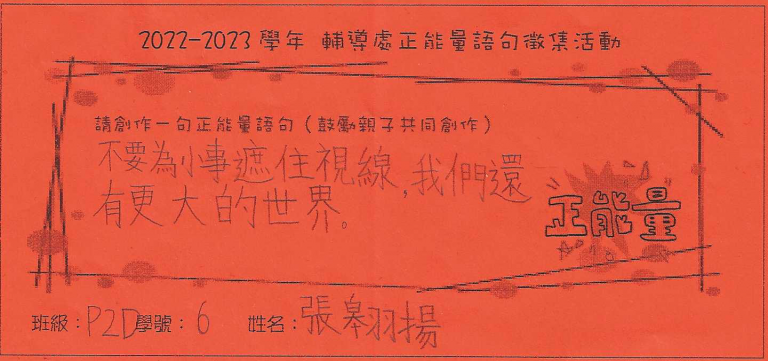 2022-2023學年 輔導處正能量語句徵集活動
請創作一句正能量語句（鼓勵親子共同創作）
不要為小事遮住視線,我們還
有更大的世界。
正能量
班級：P2D學號：6 姓名：張皋羽揚